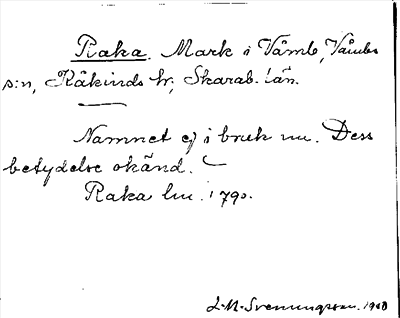 Raka. Mark i Våmb, Våmbs
s:n, Kåkinds hr, Skarab. län.
Namnet ej i bruk nu. Dess
betydelse okänd.
Raka lm. 1790.
L.M. Svenungsson. 1908